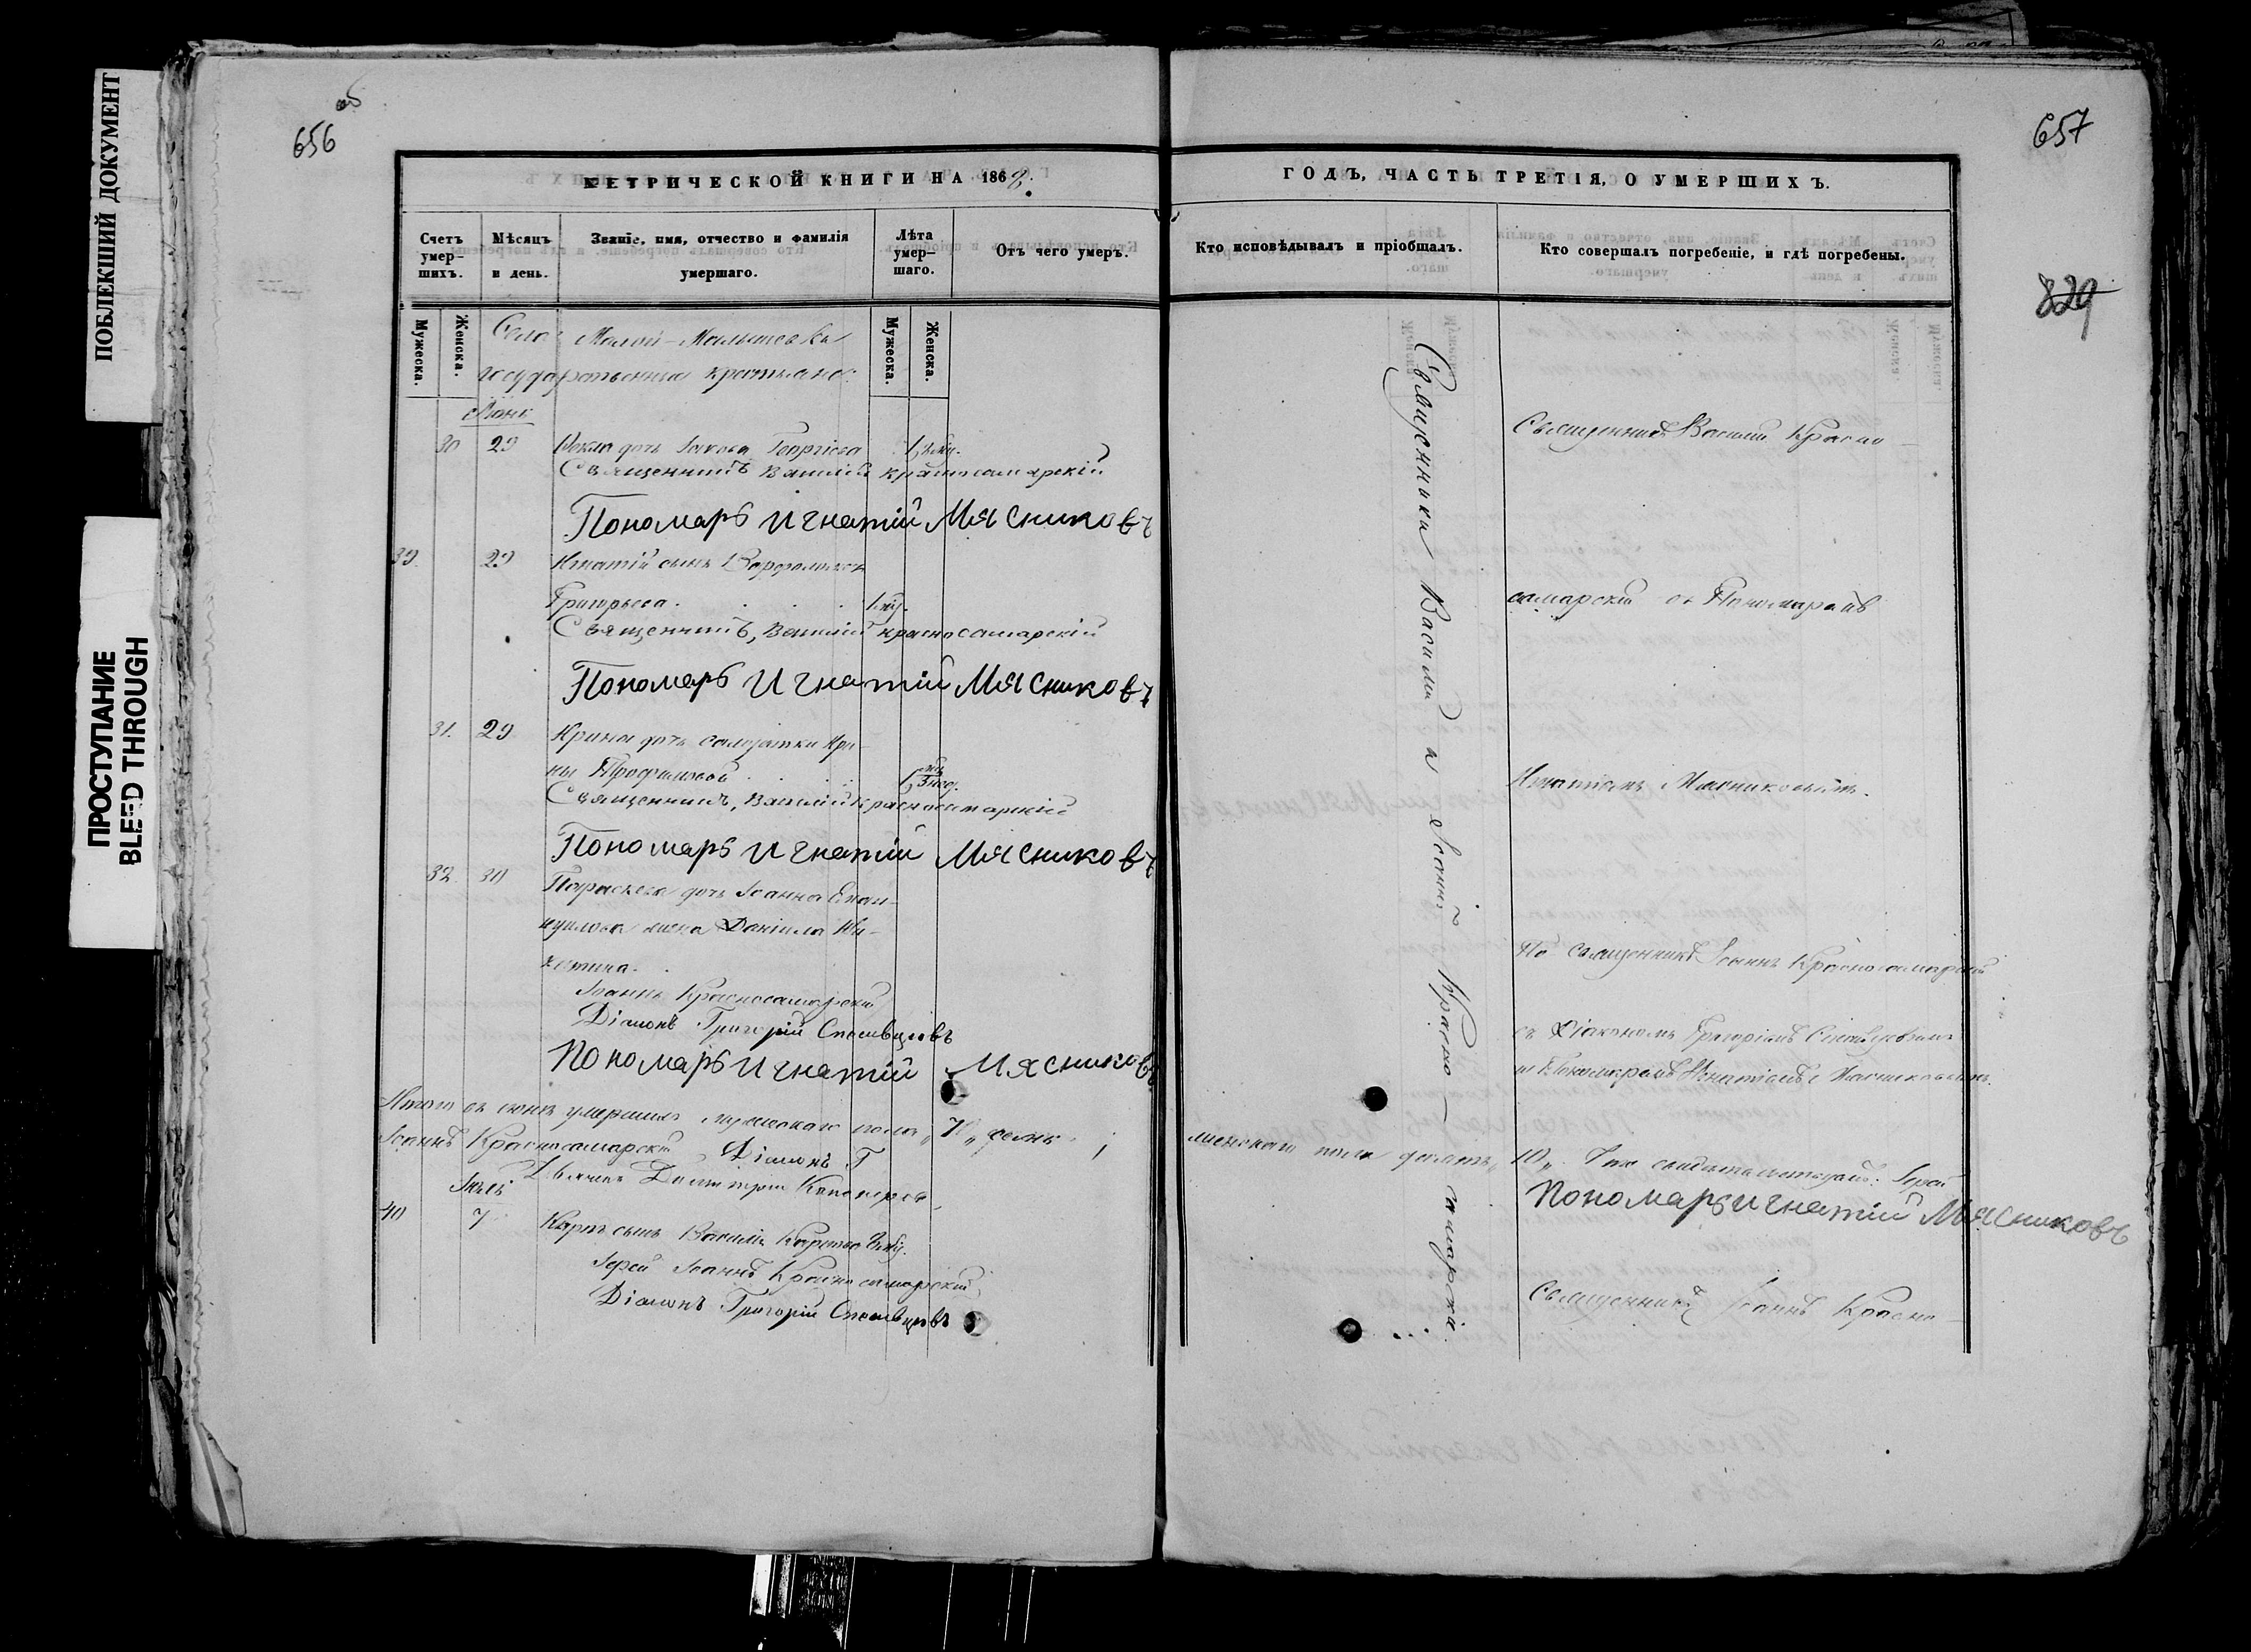 ПОБЛЕКШИЙ ДОКУМЕНТ
ПРОСТУПАНИЕ
BLEED THROUGH
656
об
МЕТРИЧЕСКОЙ КНИГИ НА 1868
Счетъ умер-шихъ.
Мѣсяцъ и день.
Званіе, имя, отчество и фамилія умершаго.
Лѣта умер-шаго.
Отъ чего умеръ.
Мужеска.
Женска.
Мужеска.
Женска.
Село Малой-Малышевки
государственные крестьяне
Іюнь
30 29 Ѳекла дочь Іакова Георгіева
Священникъ Василій Красносамарскій
Пономарь Игнатій Мясниковъ
39. 29 Игнатій сынъ Варфоломея
Григорьева.
Священникъ, Василій Красносамарскій
Пономарь Игнатій Мясниковъ
31. 29 Ирина дочь солдатки Ири-
ны Трофимовой
Священникъ, Василій Красносамарскій
Пономарь Игнатій Мясниковъ
32. 30 Параскева дочь Іоанна
жена Даніила Ни-
китина.
Іоаннъ Красносамарскій
Діаконъ Григорій
Пономарь Игнатій Мясниковъ
Итого въ іюнѣ умершихъ мужескаго пола „7„ семь
Іоаннъ Красносамарскій Діаконъ Г
Дьячекъ Димитрій
Іюль
40 7 Карпъ сынъ Василія Карпова
Іерей Іоаннъ Красносамарскій
Діаконъ Григорій
657
829
ГОДЪ, ЧАСТЬ ТРЕТІЯ, О УМЕРШИХЪ.
Кто исповѣдывалъ и пріобщалъ.
Кто совершалъ погребеніе, и гдѣ погребены.
Священники Василій и Іоаннъ Красно-самарскіе
Священникъ Василій Красно-
самарскій съ Пономаремъ
Игнатіемъ Мясниковымъ.
Священникъ Іоаннъ Красносамарскій
съ Діакономъ Григоріемъ
и Пономаремъ Игнатіемъ Мясниковымъ.
женскаго пола десять „10„. Іерей
Пономарь Игнатій Мясниковъ
Священникъ Іоаннъ Красно-